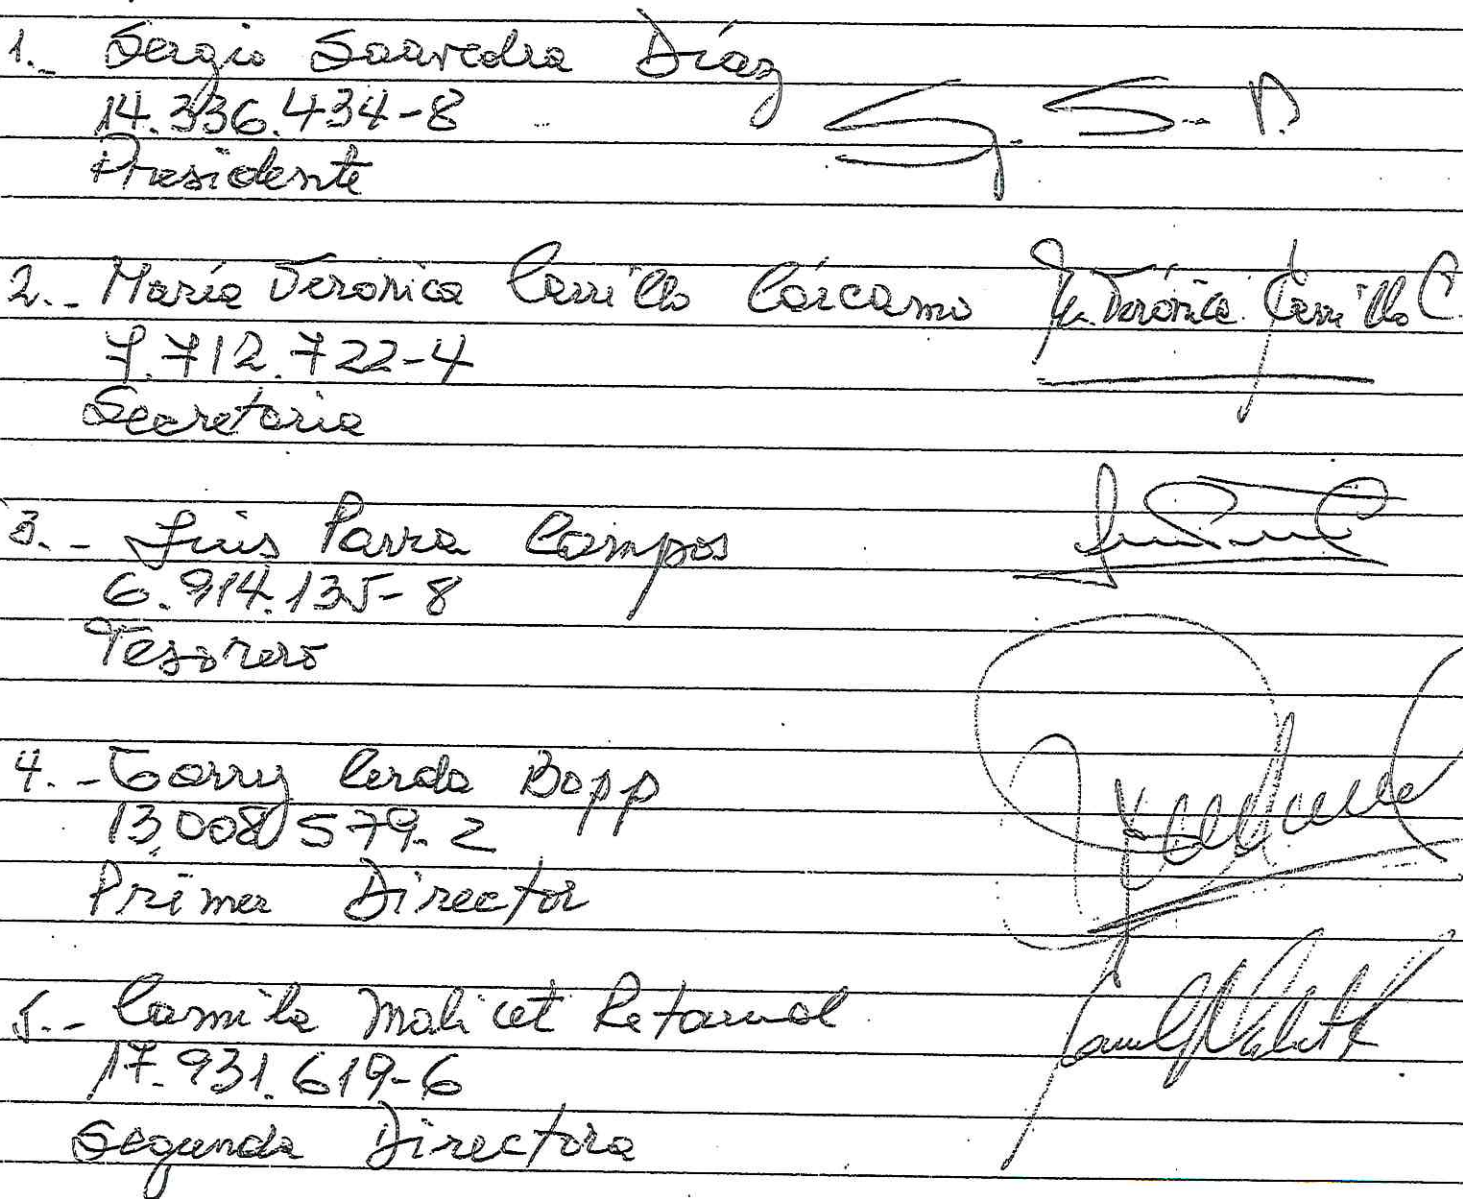 1.- Sergio Saavedra Díaz
14.336.434-8
S. S. D.
Presidente
2.- María Veronica Carrillo Cárcamo Ma. Verónica Carrillo C.
7.712.722-4
Secretaria
3.- Luis Parra Campos
6.914.135-8
Tesorero
4.- Garry Cerda Bopp
13.008.579-2
Primer Director
5.- Camila Malicet Retamal
17.931.619-6
Segunda Directora